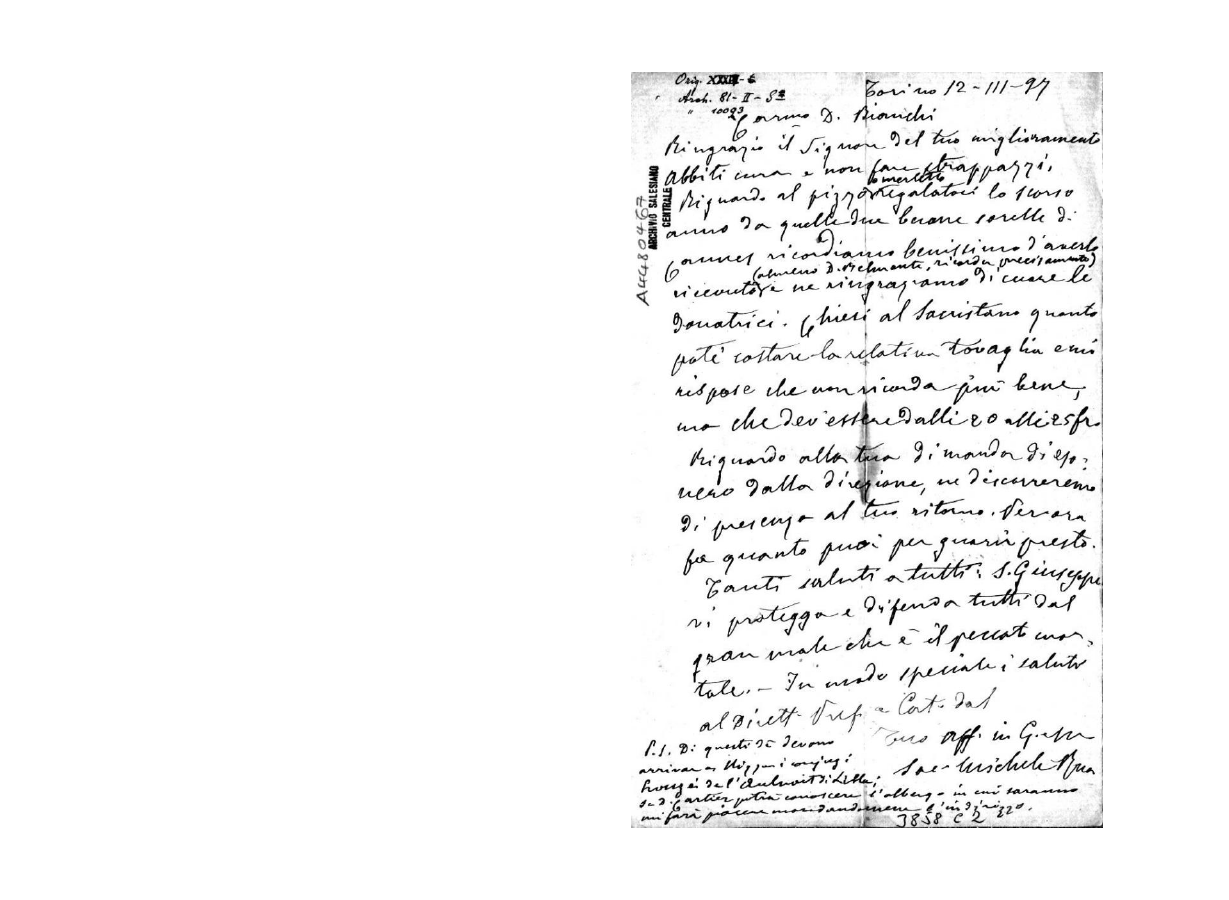 Orig. XXXII - 6
Arch. 81 - II - S
" 10093
Torino 12-III-97
Carmo D. Bianchi
Ringrazio il Signore del tuo miglioramento
Abbiti cura e non fare strappazzi.
o merletto
Riguardo al pizzo regalatoci lo scorso
anno da quelle due buone sorelle di
Cannes ricordiamo benissimo d'averlo
(almeno D. Belmonte, ricorda precisamente)
ricevuto e ne ringraziamo di cuore le
donatrici. Chiesi al Sacristano quanto
poté costare la relativa tovaglia e mi
rispose che non ricorda più bene,
ma che dev'essere dalli 20 alli 25 fr.
Riguardo alla tua dimanda di eso-
nero dalla direzione, ne discorreremo
di presenza al tuo ritorno. Per ora
fa quanto puoi per guarir presto.
Tanti saluti a tutti: S. Giuseppe
vi protegga e difenda tutti dal
gran male che è il peccato mor-
tale. - In modo speciale i saluto
al Dirett. Pref. e Cat. dal
Tuo aff. in G. e M.
Sac. Michele Rua
P.S. Di questi dì devono
arrivare a Nizza i conjugi
de l' di Lilla;
se D. Cartier potrà conoscere l'albergo in cui saranno
mi farà piacere mandandomene l'indirizzo.
3858 C 2
A4480467
ARCHIVIO SALESIANO
CENTRALE